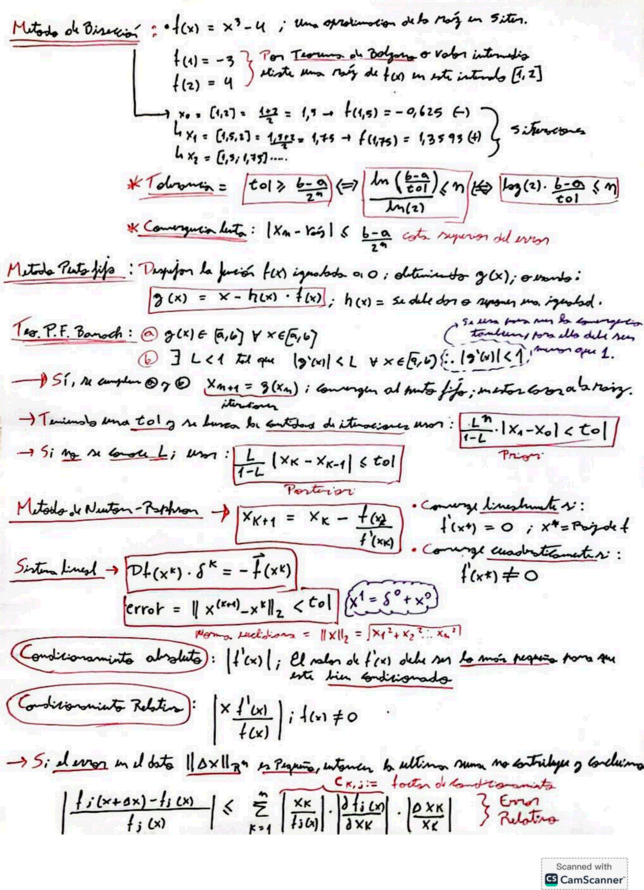 Metodo de Bisección : • f(x) = x³ - 4 ; una aproximacion de la raíz en 5 iter.
f(1) = -3 } Por Teorema de Bolzano o valor intermedio
f(2) = 4 } existe una raíz de f(x) en este intervalo [1,2]
→ x₀ = [1,2] = (1+2)/2 = 1,5 → f(1,5) = -0,625 (-)
↳ x₁ = [1,5,2] = (1,5+2)/2 = 1,75 → f(1,75) = 1,3593 (+) } 5 iteraciones
↳ x₂ = [1,5;1,75]....
* Tolerancia = tol ≥ (b-a)/2ⁿ ⟺ ln((b-a)/tol)/ln(2) ≤ n ⟺ log(2)·(b-a)/tol ≤ n
* Convergencia lenta : |xn - raíz| ≤ (b-a)/2ⁿ cota superior del error
Metodo Punto fijo : Despejar la función f(x) igualada a 0 ; obteniendo g(x) ; o usando :
g(x) = x - h(x) · f(x) ; h(x) = se debe dar o suponer una igualdad.
Teo. P.F. Banach : ⓐ g(x) ∈ [a,b] ∀ x ∈ [a,b]
Se usa para ver la convergencia
tambien, para ello debe ser
menor que 1.
ⓑ ∃ L < 1 tal que |g'(x)| < L ∀ x ∈ [a,b] ∴ |g'(x)| < 1
→ Sí, se cumplen ⓐ y ⓑ xₙ₊₁ = g(xₙ) ; convergen al punto fijo ; a la raíz.
iteraciones
→ Teniendo una tol y se busca la cantidad de iteraciones usar : Lⁿ/(1-L) · |x₁ - x₀| < tol
Priori
→ Si no se conoce L ; usar : L/(1-L) |xK - xK-1| ≤ tol
Posteriori
Metodo de Newton-Raphson → xK+1 = xK - f(x)/f'(xK)
• Converge linealmente si :
f'(x*) = 0 ; x* = Raíz de f
• Converge cuadraticamente si :
f'(x*) ≠ 0
Sistema lineal → Df(xᴷ) · δᴷ = -f⃗(xᴷ)
error = ‖ x⁽ᴷ⁺¹⁾ - xᴷ ‖₂ < tol x¹ = δ⁰ + x⁰
Norma euclidiana = ‖x‖₂ = √(x₁² + x₂² ... xₙ²)
Condicionamiento absoluto : |f'(x)| ; El valor de f'(x) debe ser lo más pequeño para que
este bien condicionado
Condicionamiento Relativo : |x f'(x)/f(x)| ; f(x) ≠ 0
→ Si el error en el dato ‖Δx‖ℝⁿ es Pequeño, entonces la ultima suma no contribuye y concluimos
CK,j := factor de condicionamiento
|(fj(x+Δx) - fj(x))/fj(x)| ≤ Σ(K=1, n) |xK/fj(x)| · |∂fj(x)/∂xK| · |ΔxK/xK| } Error Relativo
Scanned with
CS CamScanner